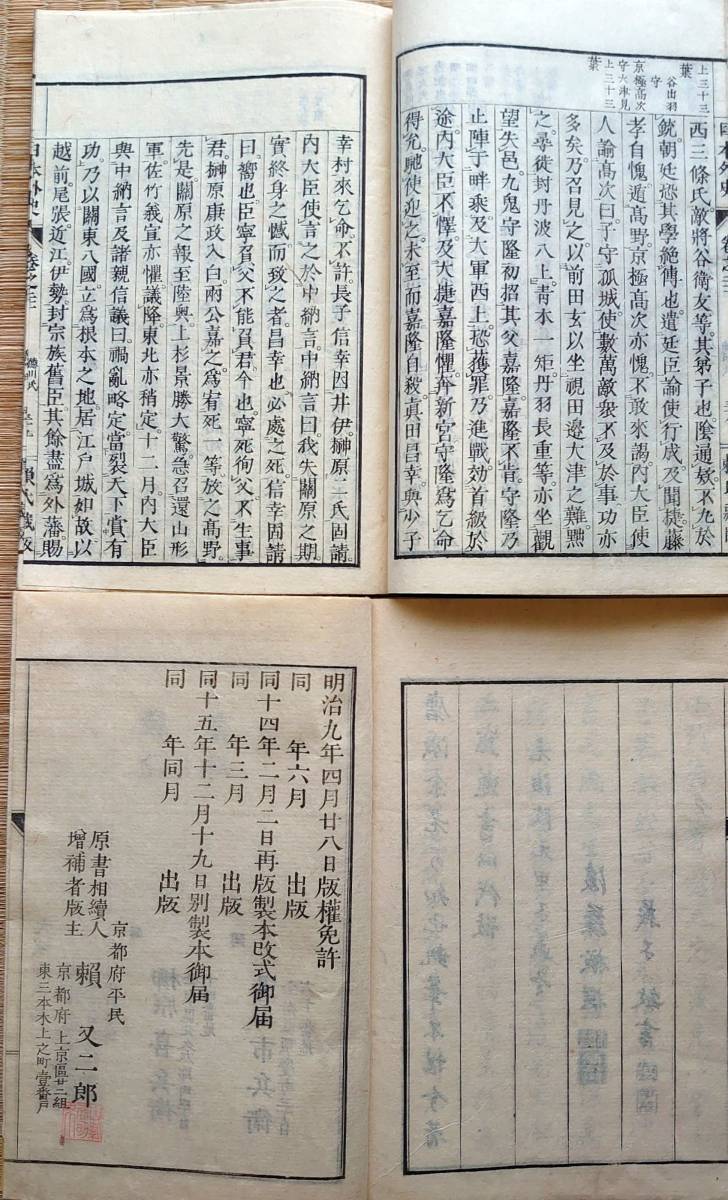 上三十三
葉
谷出羽
守
京極高次
守大津見
上三十三
葉
西三條氏敵將谷衛友等其弟子也陰通欵不力於
銃朝廷恐其學絶傳也遣廷臣諭使行成及聞捷藤
孝自愧遁高野京極高次亦愧不敢來謁內大臣使
人諭高次曰子守孤城使數萬敵衆不及於事功亦
多矣乃召見之以前田玄以坐視田邊大津之難黜
之尋徙封丹波八上青木一矩丹羽長重等亦坐觀
望失邑九鬼守隆初招其父嘉隆嘉隆不肯守隆乃
止陣于畔乘及大軍西上恐獲罪乃進戰効首級於
途內大臣不懌及大捷嘉隆懼奔新宮守隆爲乞命
得允馳使迎之未至而嘉隆自殺眞田昌幸與少子
幸村來乞命不許長子信幸因井伊榊原二氏固請
內大臣使言之於中納言中納言曰我失關原之期
實終身之憾而致之者昌幸也必處之死信幸固請
曰嚮也臣寧負父不能負君今也寧死徇父不生事
君榊原康政入白兩公嘉之爲宥死一等放之高野
先是關原之報至陸奧上杉景勝大驚急召還山形
軍佐竹義宣亦懼議降東北亦稍定十二月內大臣
與中納言及諸親信議曰禍亂略定當裂天下賞有
功乃以關東八國立爲根本之地居江戶城如故以
越前尾張近江伊勢封宗族舊臣其餘盡爲外藩賜
日本外史
德川氏
賴氏藏版
明治九年四月廿八日版權免許
同　年六月　出版
同十四年二月二日再版製本改式御届
同　年三月　出版
同十五年十二月十九日別製本御届
同　年同月　出版
京都府平民
原書相續人
增補者版主
賴又二郎
京都府上京區廿二組
東三本木上之町壹番戶